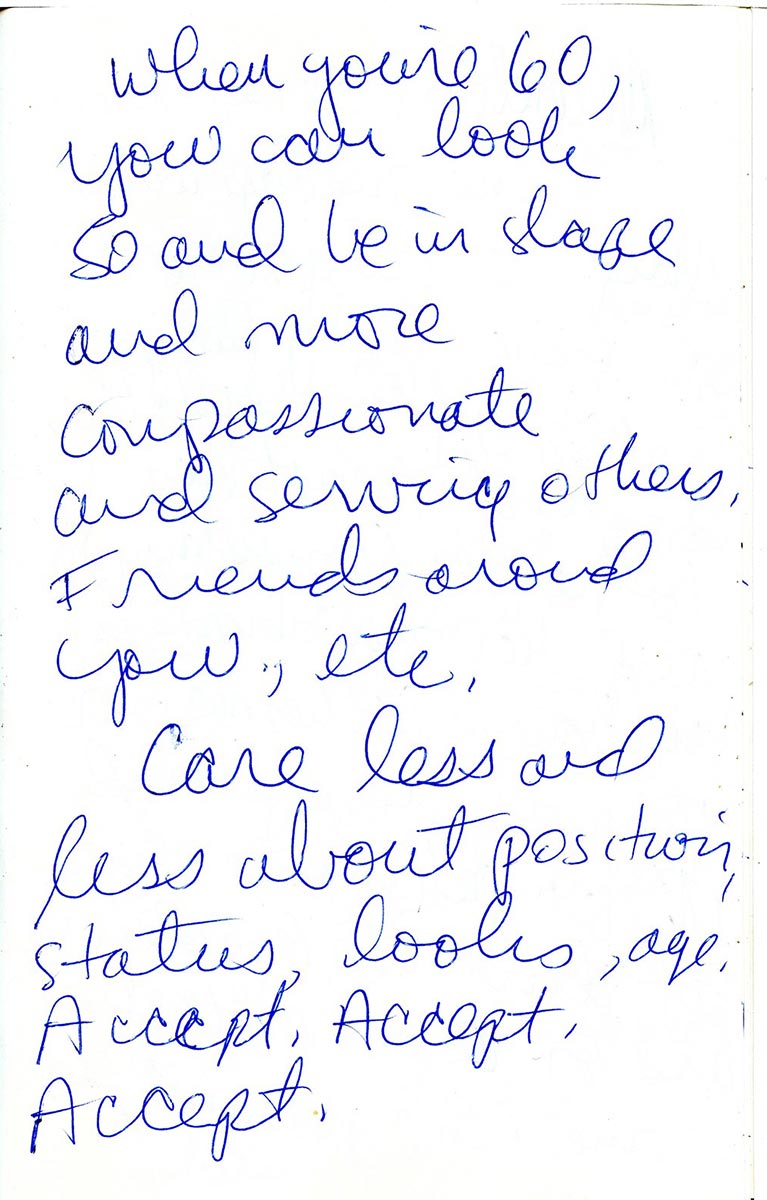 When you're 60,
you can look
50 and be in shape
and more
compassionate
and serving others.
Friends around
you, etc.
Care less and
less about position,
status, looks, age.
Accept. Accept.
Accept.